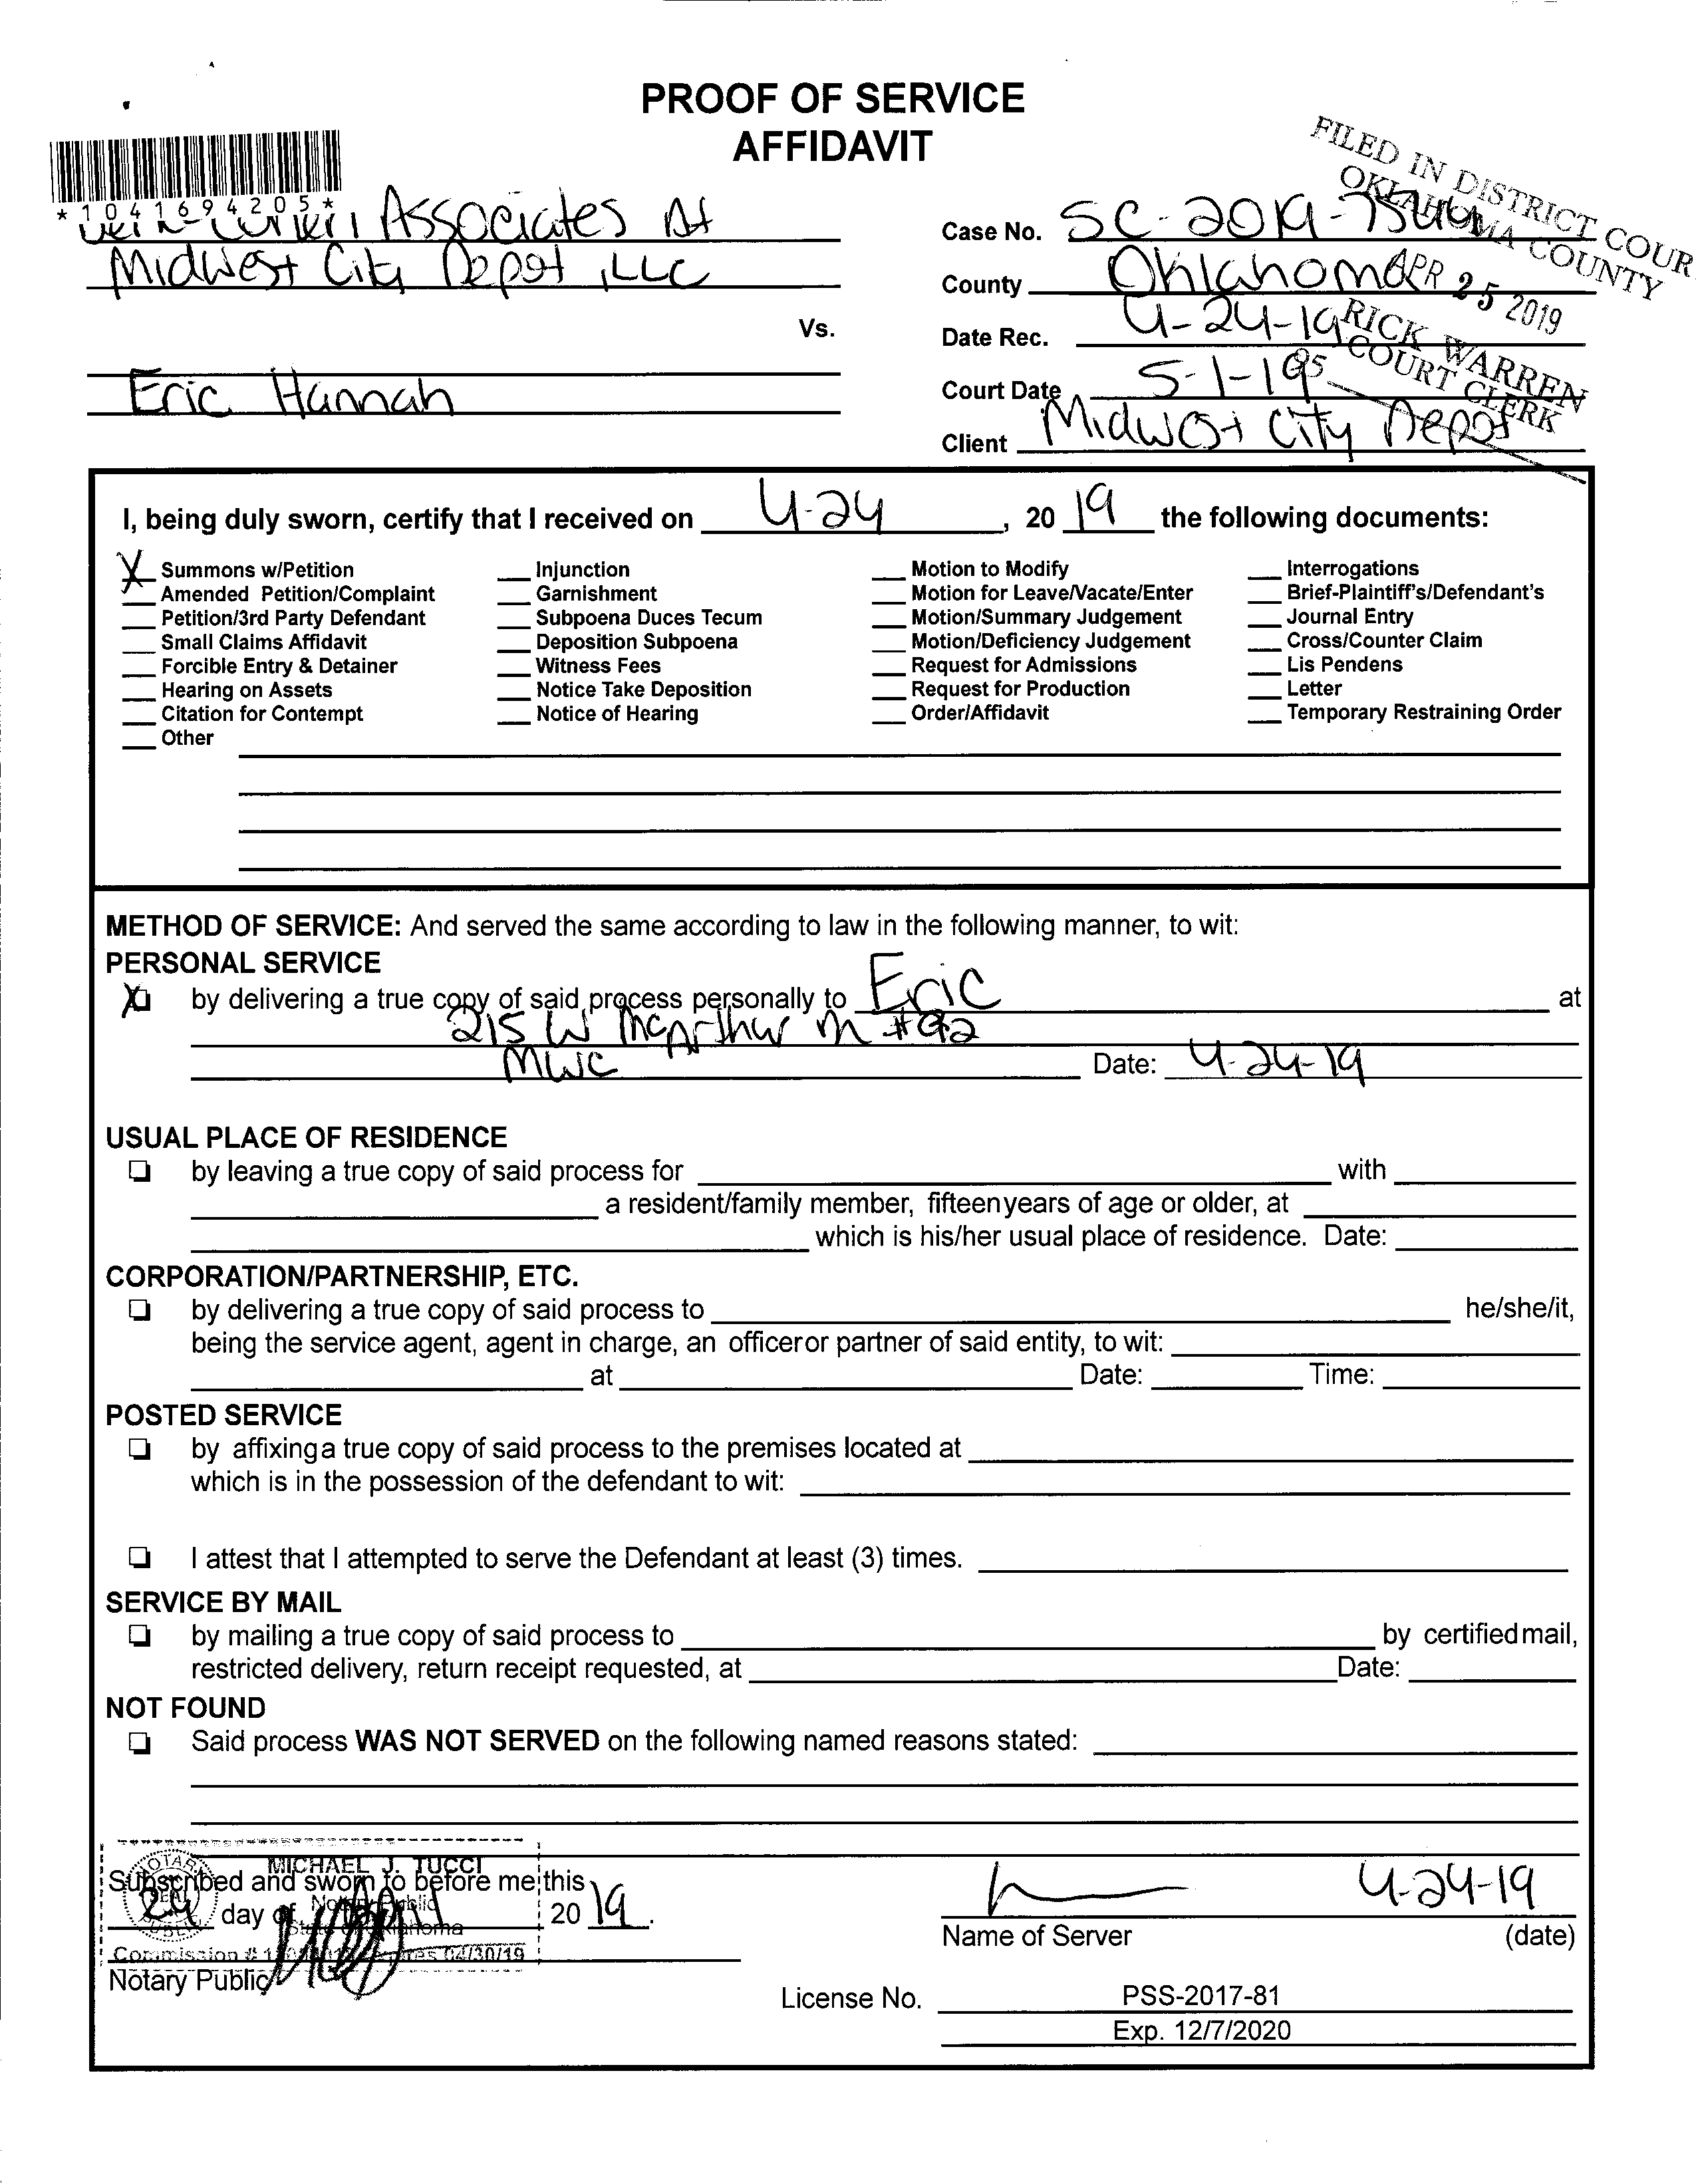 PROOF OF SERVICE
AFFIDAVIT
FILED IN DISTRICT COUR
OKLAHOMA COUNTY
APR 25 2019
RICK WARREN
COURT CLERK
*1041694205*
Associates At
Midwest City Depot, LLC
Vs.
Eric Hannah
Case No. SC-2019-
County Oklahoma
Date Rec. 4-24-19
Court Date 5-1-19
Client Midwest City Depot
I, being duly sworn, certify that I received on 4-24, 20 19 the following documents:
X Summons w/Petition
Amended Petition/Complaint
Petition/3rd Party Defendant
Small Claims Affidavit
Forcible Entry & Detainer
Hearing on Assets
Citation for Contempt
Other
Injunction
Garnishment
Subpoena Duces Tecum
Deposition Subpoena
Witness Fees
Notice Take Deposition
Notice of Hearing
Motion to Modify
Motion for Leave/Vacate/Enter
Motion/Summary Judgement
Motion/Deficiency Judgement
Request for Admissions
Request for Production
Order/Affidavit
Interrogations
Brief-Plaintiff's/Defendant's
Journal Entry
Cross/Counter Claim
Lis Pendens
Letter
Temporary Restraining Order
METHOD OF SERVICE: And served the same according to law in the following manner, to wit:
PERSONAL SERVICE
X by delivering a true copy of said process personally to Eric at
215 W McArthur #92
MWC Date: 4-24-19
USUAL PLACE OF RESIDENCE
by leaving a true copy of said process for with
a resident/family member, fifteen years of age or older, at
which is his/her usual place of residence. Date:
CORPORATION/PARTNERSHIP, ETC.
by delivering a true copy of said process to he/she/it,
being the service agent, agent in charge, an officer or partner of said entity, to wit:
at Date: Time:
POSTED SERVICE
by affixing a true copy of said process to the premises located at
which is in the possession of the defendant to wit:
I attest that I attempted to serve the Defendant at least (3) times.
SERVICE BY MAIL
by mailing a true copy of said process to by certified mail,
restricted delivery, return receipt requested, at Date:
NOT FOUND
Said process WAS NOT SERVED on the following named reasons stated:
MICHAEL J. TUCCI
Subscribed and sworn to before me this
24 day of 20 19.
Notary Public
State of Oklahoma
Commission # Expires 04/30/19
Notary Public
4-24-19
Name of Server (date)
License No. PSS-2017-81
Exp. 12/7/2020